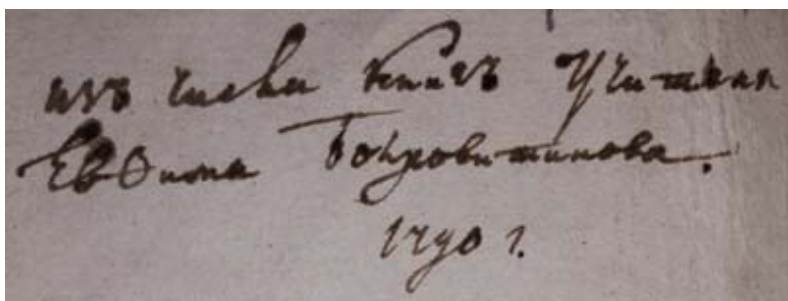 изъ числа книгъ Учителя
Евѳима Болховитинова.
1790 г.